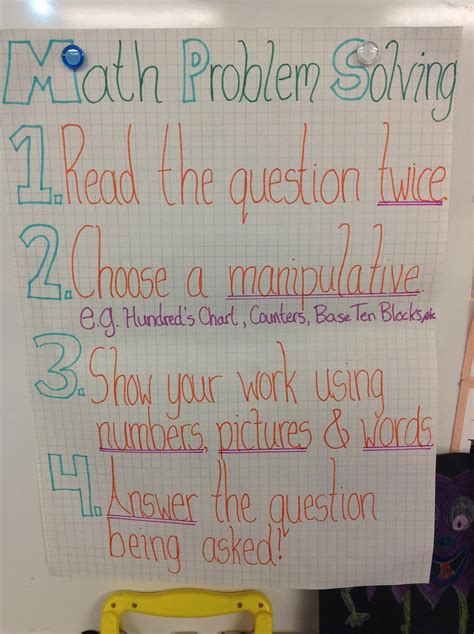 Math Problem Solving
1. Read the question twice.
2. Choose a manipulative.
e.g. Hundred's Chart, Counters, Base Ten Blocks, etc.
3. Show your work using
numbers, pictures & words.
4. Answer the question
being asked!